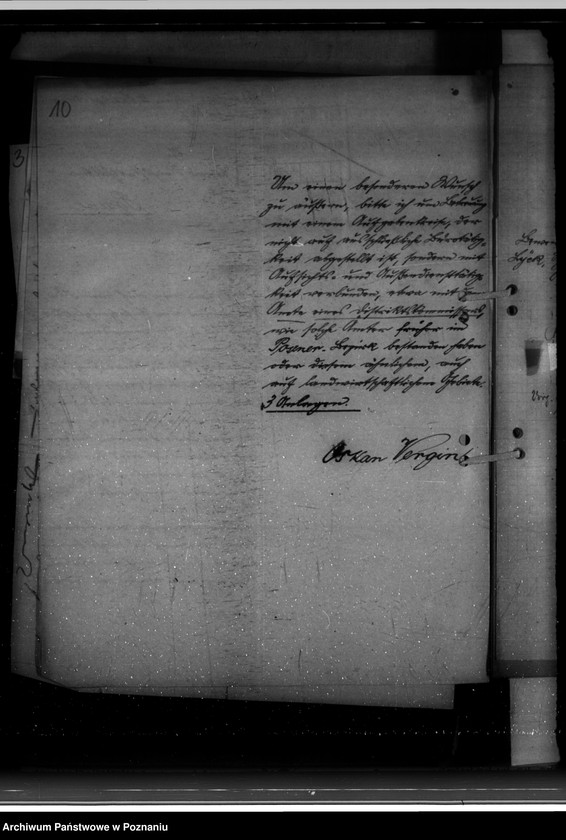 10
3
Um einen besonderen Wunsch
zu äußern, bitte ich um
mit einem Aufgabenkreise, der
nicht auf ausschließliche Bürotätig-
keit abgestellt ist, sondern mit
Aufsichts- und Außendiensttätig-
keit verbunden, etwa mit
Amte eines Distriktskommissars,
wie solche Ämter früher im
Posener Bezirk bestanden haben
oder diesem ähnlichem, auch
auf landwirtschaftlichem Gebiete.
3 Anlagen.
Oskar Vergin
Lyck,
Archiwum Państwowe w Poznaniu